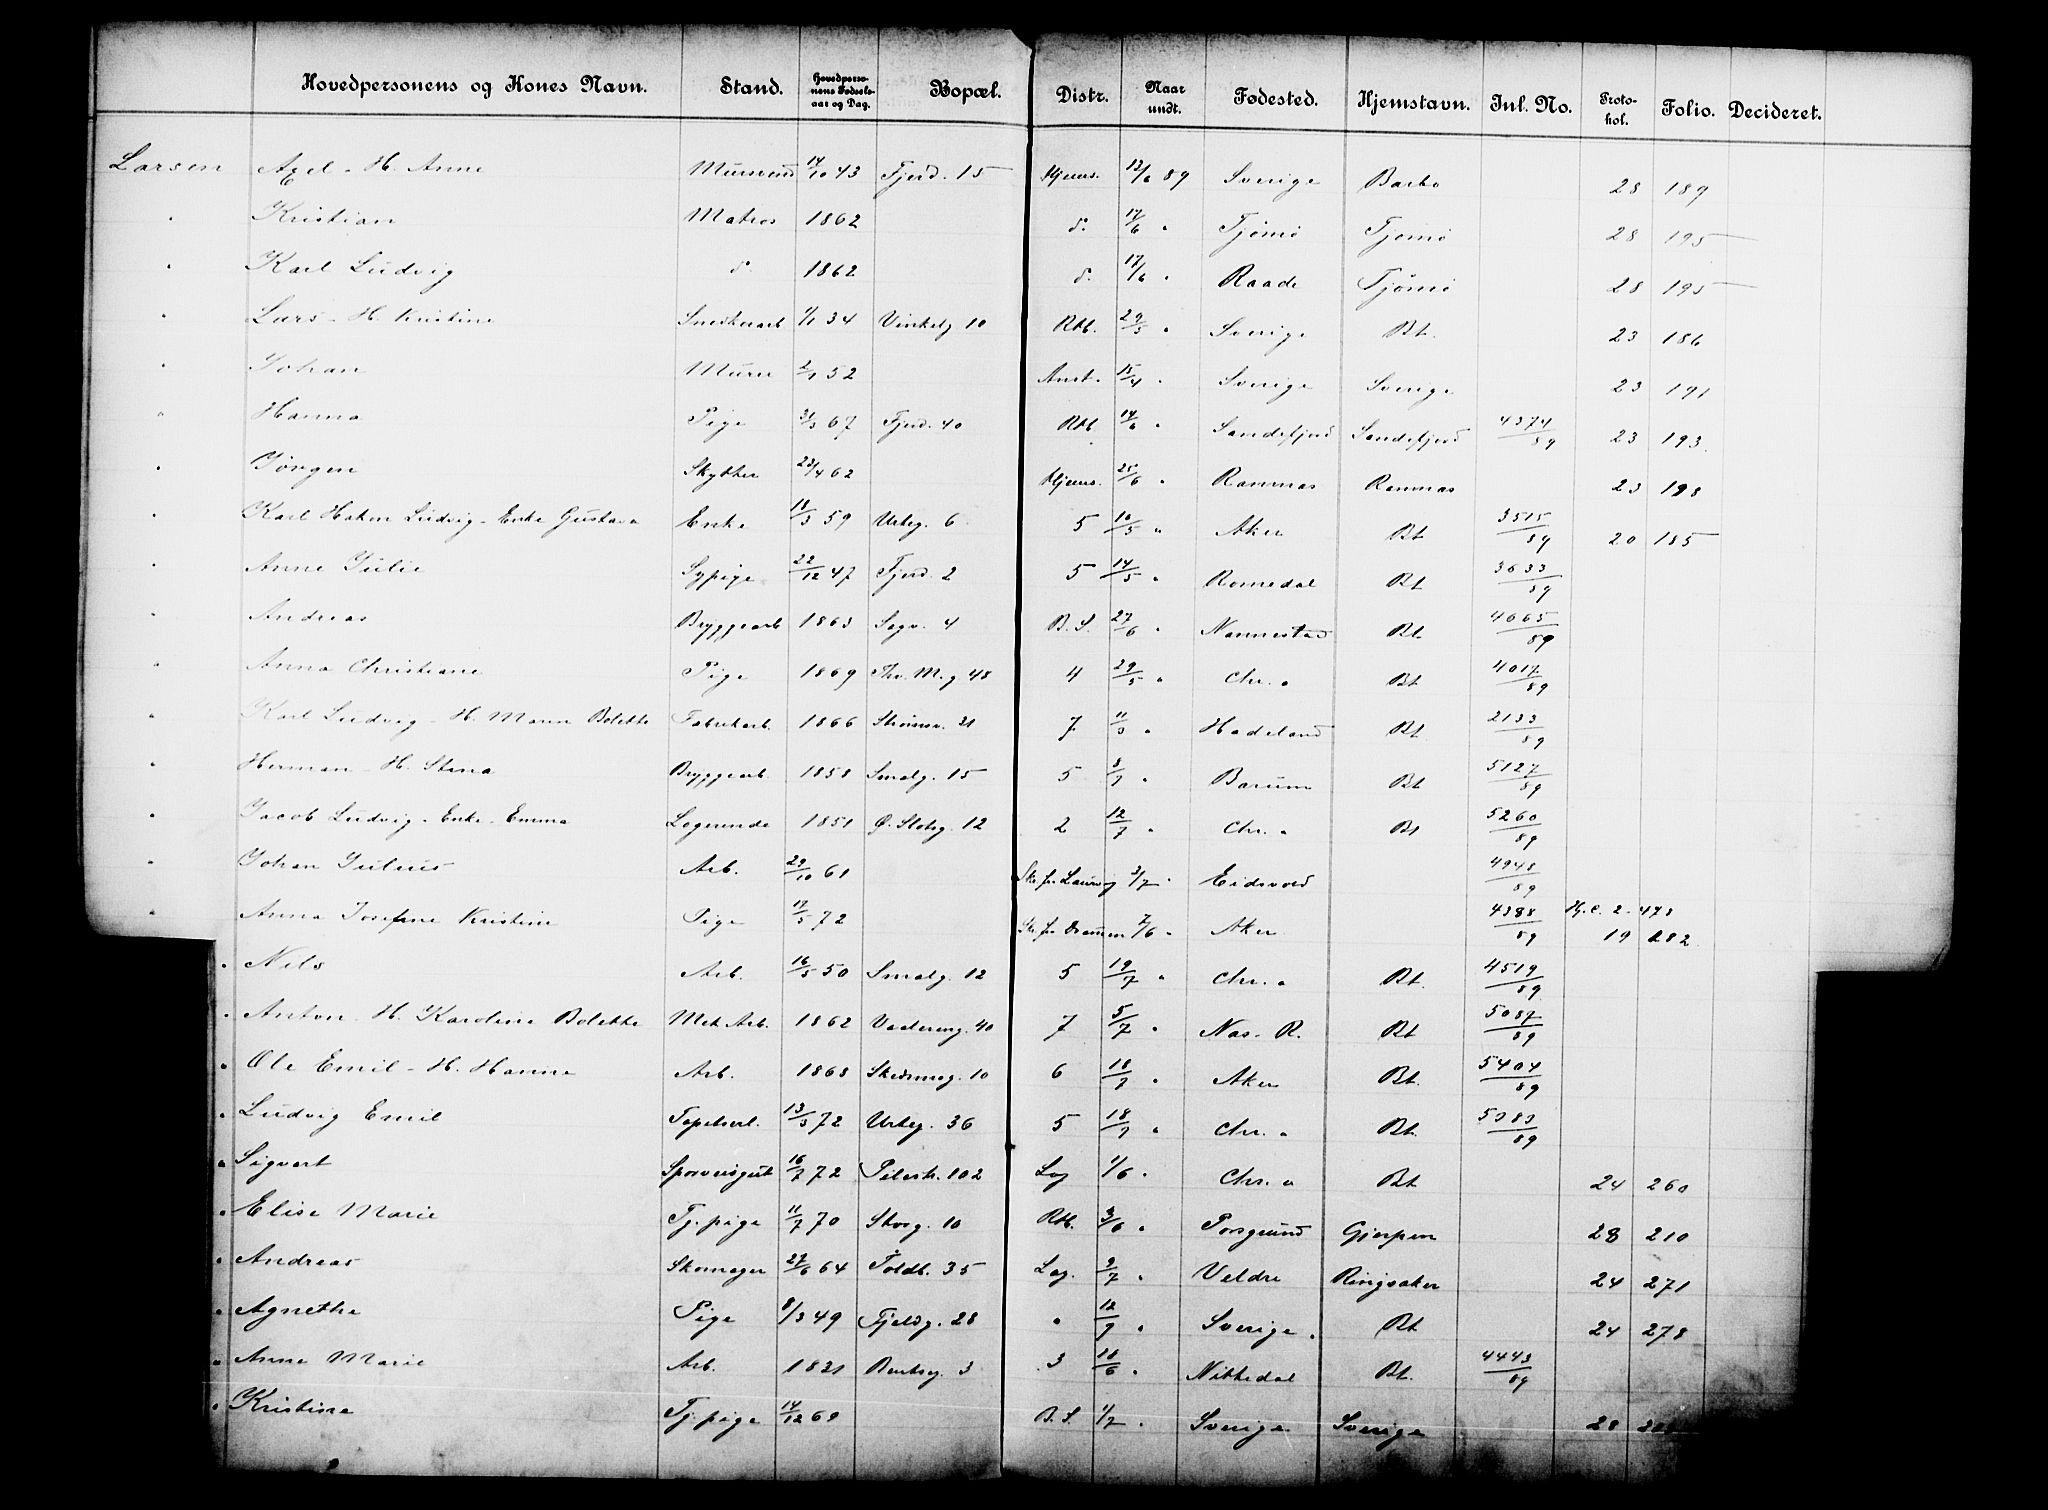 Hovedpersonens og Kones Navn. Stand. Hovedperso-nens Fødsels-aar og Dag. Bopæl. Distr. Naar undt. Fødested. Hjemstavn. Jnl. No. Proto-kol. Folio. Decideret.
Larsen Axel - H. Anne Mursvend 14/10 43 Fjerd. 15 Hjems. 12/6 89 Sverige Barbo 28 189
" Kristian Matros 1862 d. 17/6 " Tjømø Tjømø 28 195
" Karl Ludvig d. 1862 d. 17/6 " Raade Tjømø 28 195
" Lars - H. Kristine Snedkerarb 1/1 34 Vinkelg 10 Rtb. 29/5 " Sverige Bt. 23 186
" Johan Murer 2/1 52 Anst. 15/4 " Sverige Sverige 23 191
" Hanna Pige 31/3 67 Fjerd. 40 Rtb 14/6 " Sandefjord Sandefjord 4374/89 23 193
" Jørgen Skytter 23/4 62 Hjems. 25/6 " Ramnas Ramnas 23 198
" Karl Hakon Ludvig - Enke Gustava Enke 11/3 59 Urteg. 6 5 10/5 " Aker Bt 3515/89 20 185
" Anne Julie Sypige 22/12 47 Fjerd. 2 5 14/5 " Romedal Bt 3633/89
" Andreas Bryggearb 1863 Sagv. 4 B. S. 27/6 " Nannestad Bt. 4665/89
" Anna Christiane Pige 1869 Thv. M. g 48 4 29/5 " Chr. a Bt 4017/89
" Karl Ludvig - H. Maren Bolette Fabrikarb. 1866 Strømsv. 21 7 11/3 " Hadeland Bt. 2133/89
" Herman - H. Stina Bryggearb. 1858 Smalg. 15 5 8/7 " Barum Bt 5127/89
" Jacob Ludvig - Enke - Emma Logerende 1851 Ø. Slotsg. 12 2 12/7 " Chr. a Bt 5260/89
" Johan Julius Arb. 29/10 61 Skr. fra Laurvig 3/7 " Eidsvold 4948/89
" Anna Josefine Kristine Pige 17/5 72 Skr. fra Drammen 7/6 " Aker 4388/89 Hj. C. 2 - 473
19 282
" Nils Arb. 16/5 50 Smalg. 12 5 19/7 " Chr. a Bt. 4519/89
" Anton - H. Karoline Bolette Mek Arb. 1862 Vaalereng. 40 7 5/7 " Nas. R. Bt 5087/89
" Ole Emil - H. Hanna Arb. 1863 Skedsmog. 10 6 18/7 " Aker Bt. 5404/89
" Ludvig Emil Tapetserl. 13/3 72 Urteg. 36 5 18/7 " Chr. a Bt. 5383/89
" Sigvart Sporveisgut 16/7 72 Pilestr. 102 Log 1/6 " Chr. a Bt 24 260
" Elise Marie Tj. pige 11/7 70 Storg. 10 Rtb. 3/6 " Porsgrund Gjerpen 28 210
" Andreas Skomager 27/6 64 Toldb. 35 Log. 2/7 " Veldre Ringsaker 24 271
" Agnethe Pige 8/3 49 Fjeldg. 28 " 12/7 " Sverige. Bt 24 278
" Anne Marie Arb. 1821 Bentseg. 3 3 11/6 " Nittedal Bt. 4443/89
" Kristine Tj. pige 14/12 69 B. S. 1/7 " Sverige Sverige 28